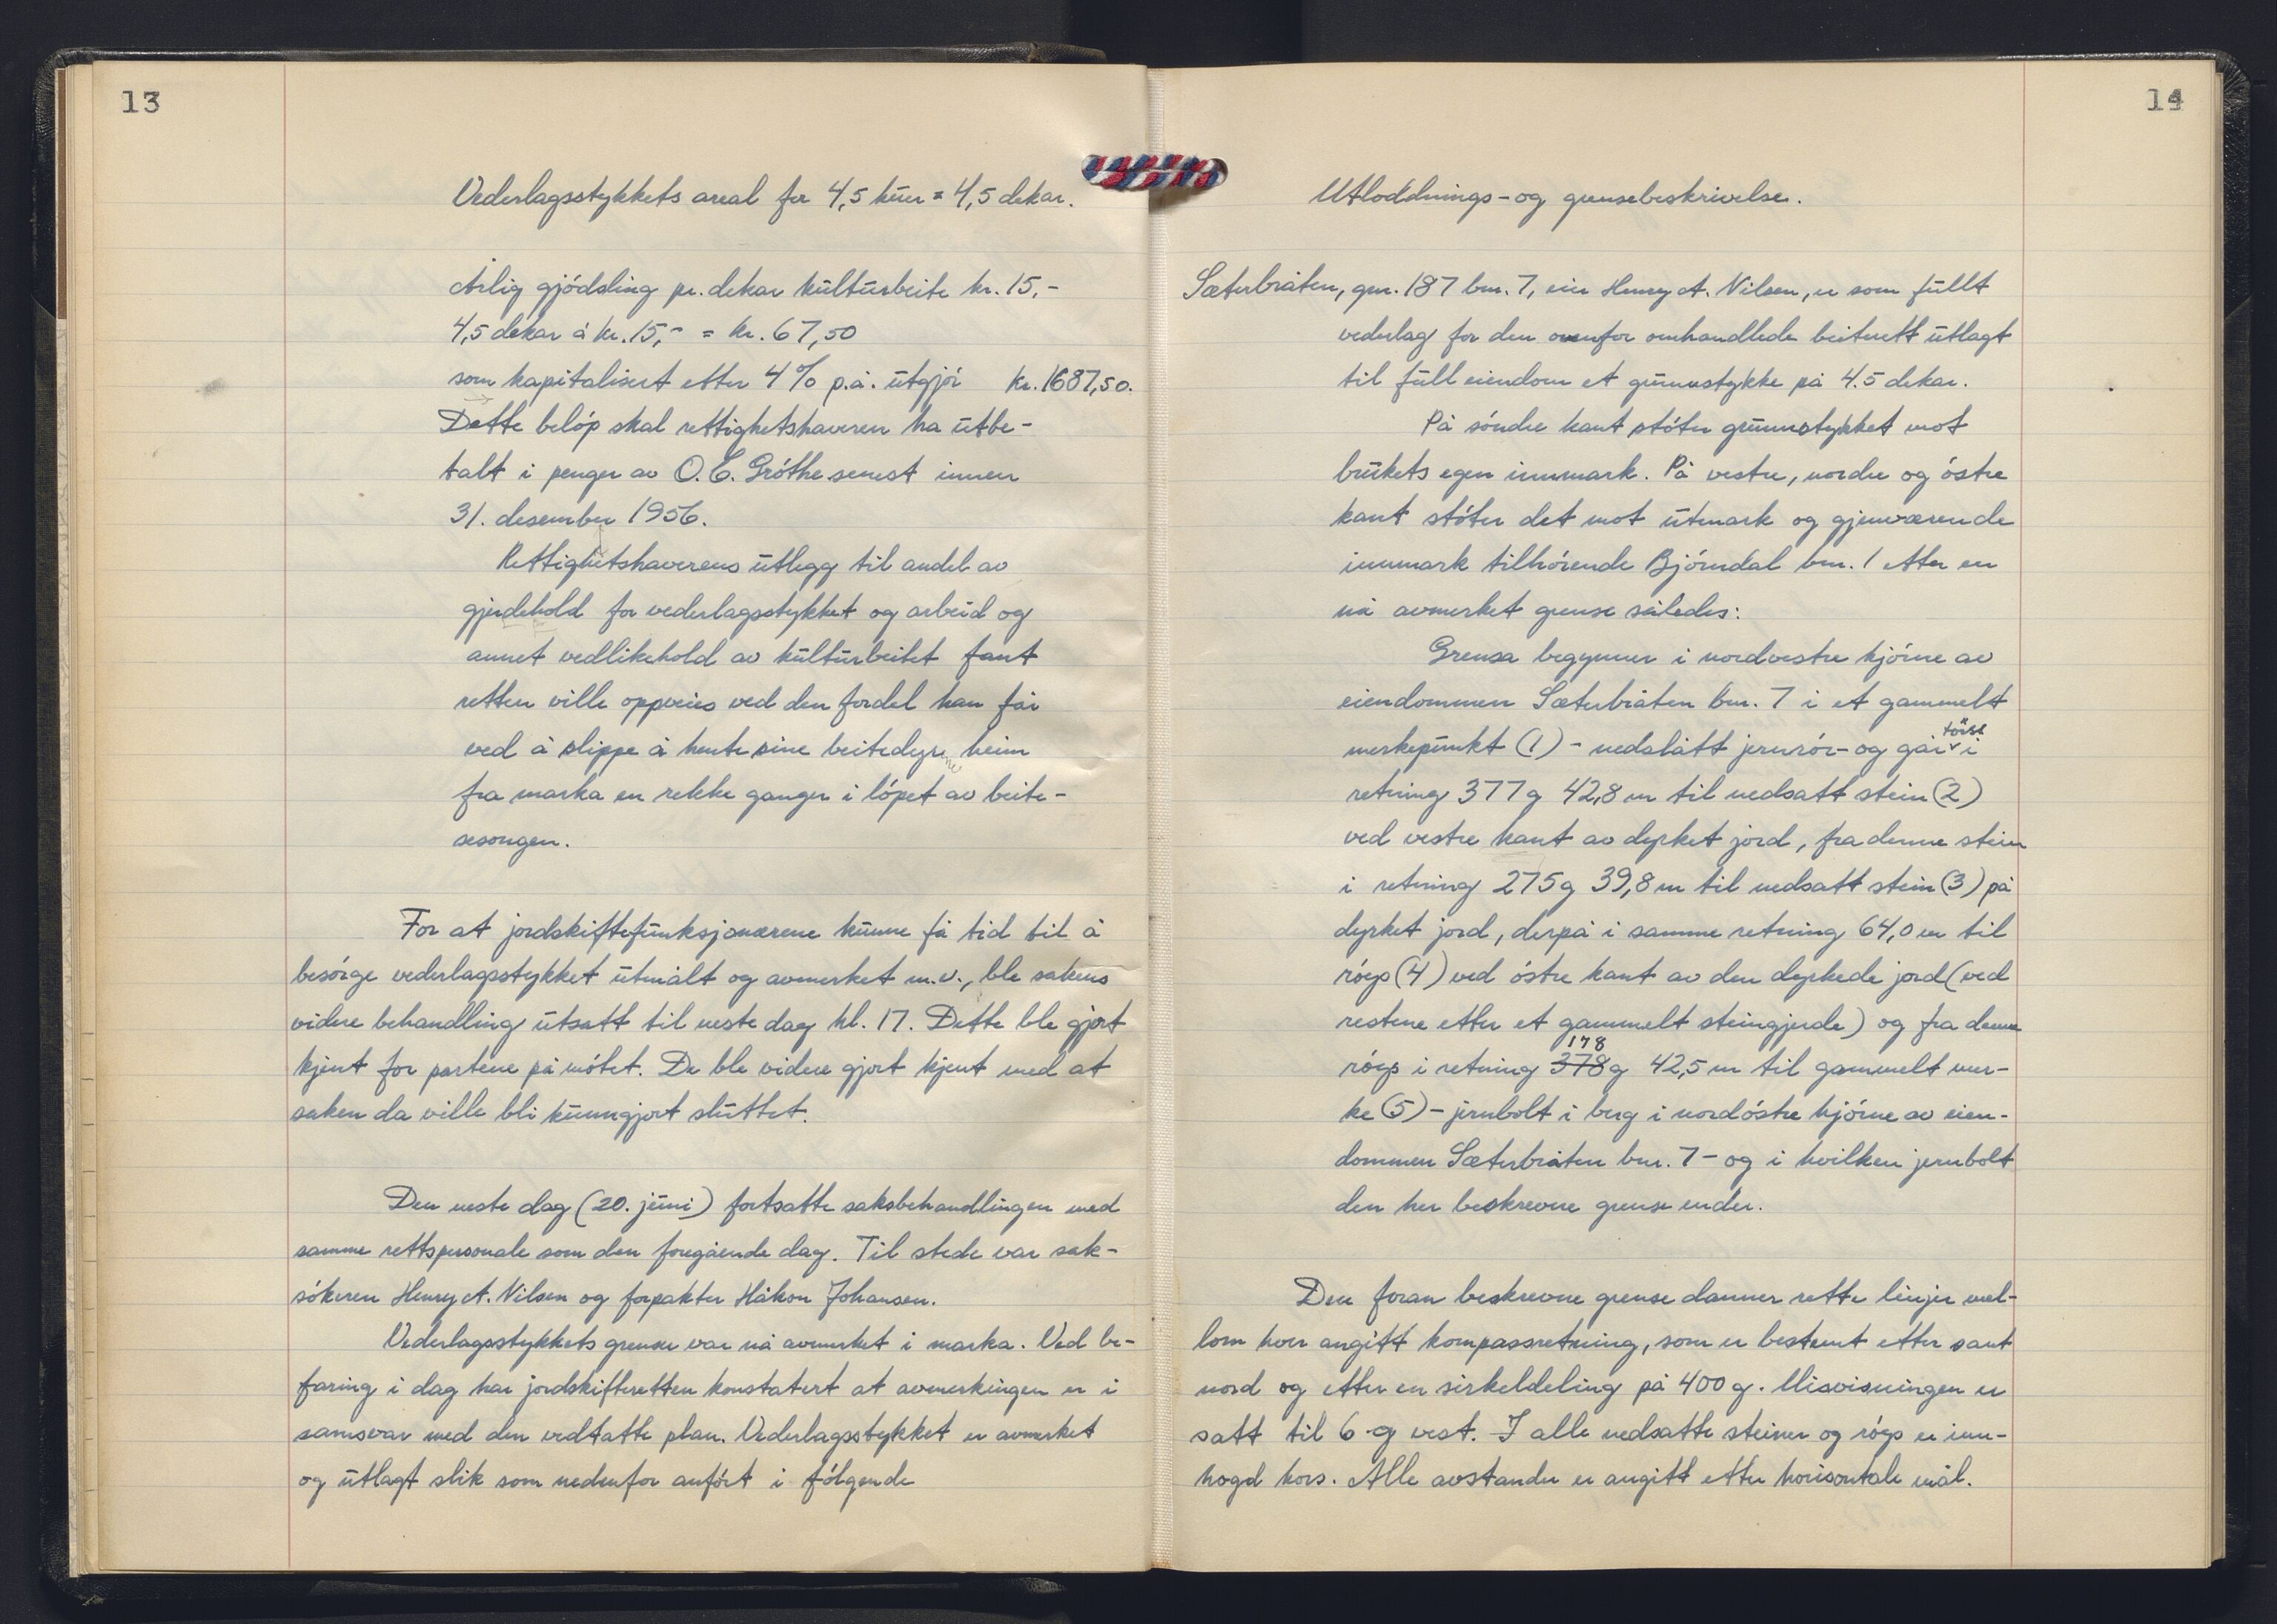 13
Vederlagsstykkets areal for 4,5 kuer = 4,5 dekar.
Årlig gjödsling pr. dekar kulturbeite kr. 15,-
4,5 dekar á kr. 15,- = kr. 67,50
som kapitalisert etter 4% p.a. utgjör kr. 1687,50.
Dette belöp skal rettighetshaveren ha utbe-
talt i penger av O. C. Gröthe senest innen
31. desember 1956.
Rettighetshaverens utlegg til andel av
gjerdehold for vederlagsstykket og arbeid og
annet vedlikehold av kulturbeitet fant
retten ville oppveies ved den fordel han får
ved å slippe å hente sine beitedyr heim
fra marka en rekke ganger i löpet av beite-
sesongen.
For at jordskiftefunksjonærene kunne få tid til å
besörge vederlagsstykket utmålt og avmerket m.v., ble sakens
videre behandling utsatt til neste dag kl. 17. Dette ble gjort
kjent for partene på mötet. De ble videre gjort kjent med at
saken da ville bli kunngjort sluttet.
Den neste dag (20. juni) fortsatte saksbehandlingen med
samme rettspersonale som den foregående dag. Til stede var sak-
sökeren Henry A. Nilsen og forpakter Håkon Johansen.
Vederlagsstykkets grense var nå avmerket i marka. Ved be-
faring i dag har jordskifteretten konstatert at avmerkingen er i
samsvar med den vedtatte plan. Vederlagsstykket er avmerket
og utlagt slik som nedenfor anfört i fölgende
14
Utloddnings- og grensebeskrivelse.
Sæterbråten, gnr. 187 bnr. 7, eier Henry A. Nilsen, er som fullt
vederlag for den ovenfor omhandlede beiterett utlagt
til full eiendom et grunnstykke på 4.5 dekar.
På söndre kant stöter grunnstykket mot
brukets egen innmark. På vestre, nordre og östre
kant stöter det mot utmark og gjenværende
innmark tilhörende Björndal bnr. 1 etter en
nå avmerket grense således:
Grensa begynner i nordvestre hjörne av
eiendommen Sæterbråten bnr. 7 i et gammelt
merkepunkt (1) - nedslått jernrör - og går först i
retning 377g 42,8 m til nedsatt stein (2)
ved vestre kant av dyrket jord, fra denne stein
i retning 275g 39,8 m til nedsatt stein (3) på
dyrket jord, derpå i samme retning 64,0 m til
röys (4) ved östre kant av den dyrkede jord (ved
restene etter et gammelt steingjerde) og fra denne
röys i retning 378 178 g 42,5 m til gammelt mer-
ke (5) - jernbolt i berg i nordöstre hjörne av eien-
dommen Sæterbråten bnr. 7 - og i hvilken jernbolt
den her beskrevne grense ender.
Den foran beskrevne grense danner rette linjer mel-
lom hver angitt kompassretning, som er bestemt etter sant
nord og etter en sirkeldeling på 400 g. Misvisningen er
satt til 6 g vest. I alle nedsatte steiner og röys er inn-
hogd kors. Alle avstander er angitt etter horisontale mål.